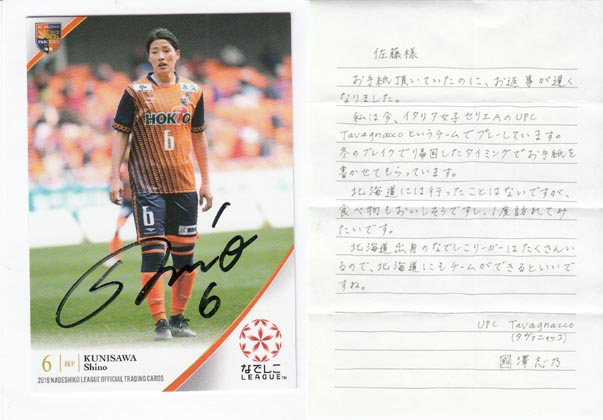 AC NAGANO
PARCEIRO
HOKTO
6
6
Shino
6
6 MF KUNISAWA
Shino
2019 NADESHIKO LEAGUE OFFICIAL TRADING CARDS
なでしこ
LEAGUE™
佐藤様
お手紙頂いていたのに、お返事が遅く
なりました。
私は今、イタリア女子セリエAのUPC
Tavagnaccoというチームでプレーしています。
冬のブレイクで帰国したタイミングでお手紙を
書かせてもらっています。
北海道には行ったことはないですが、
食べ物もおいしそうですし、1度訪れてみ
たいです。
北海道出身のなでしこリーガーはたくさんい
るので、北海道にもチームができるといいで
すね。
UPC Tavagnacco
(タヴァニャッコ)
國澤志乃